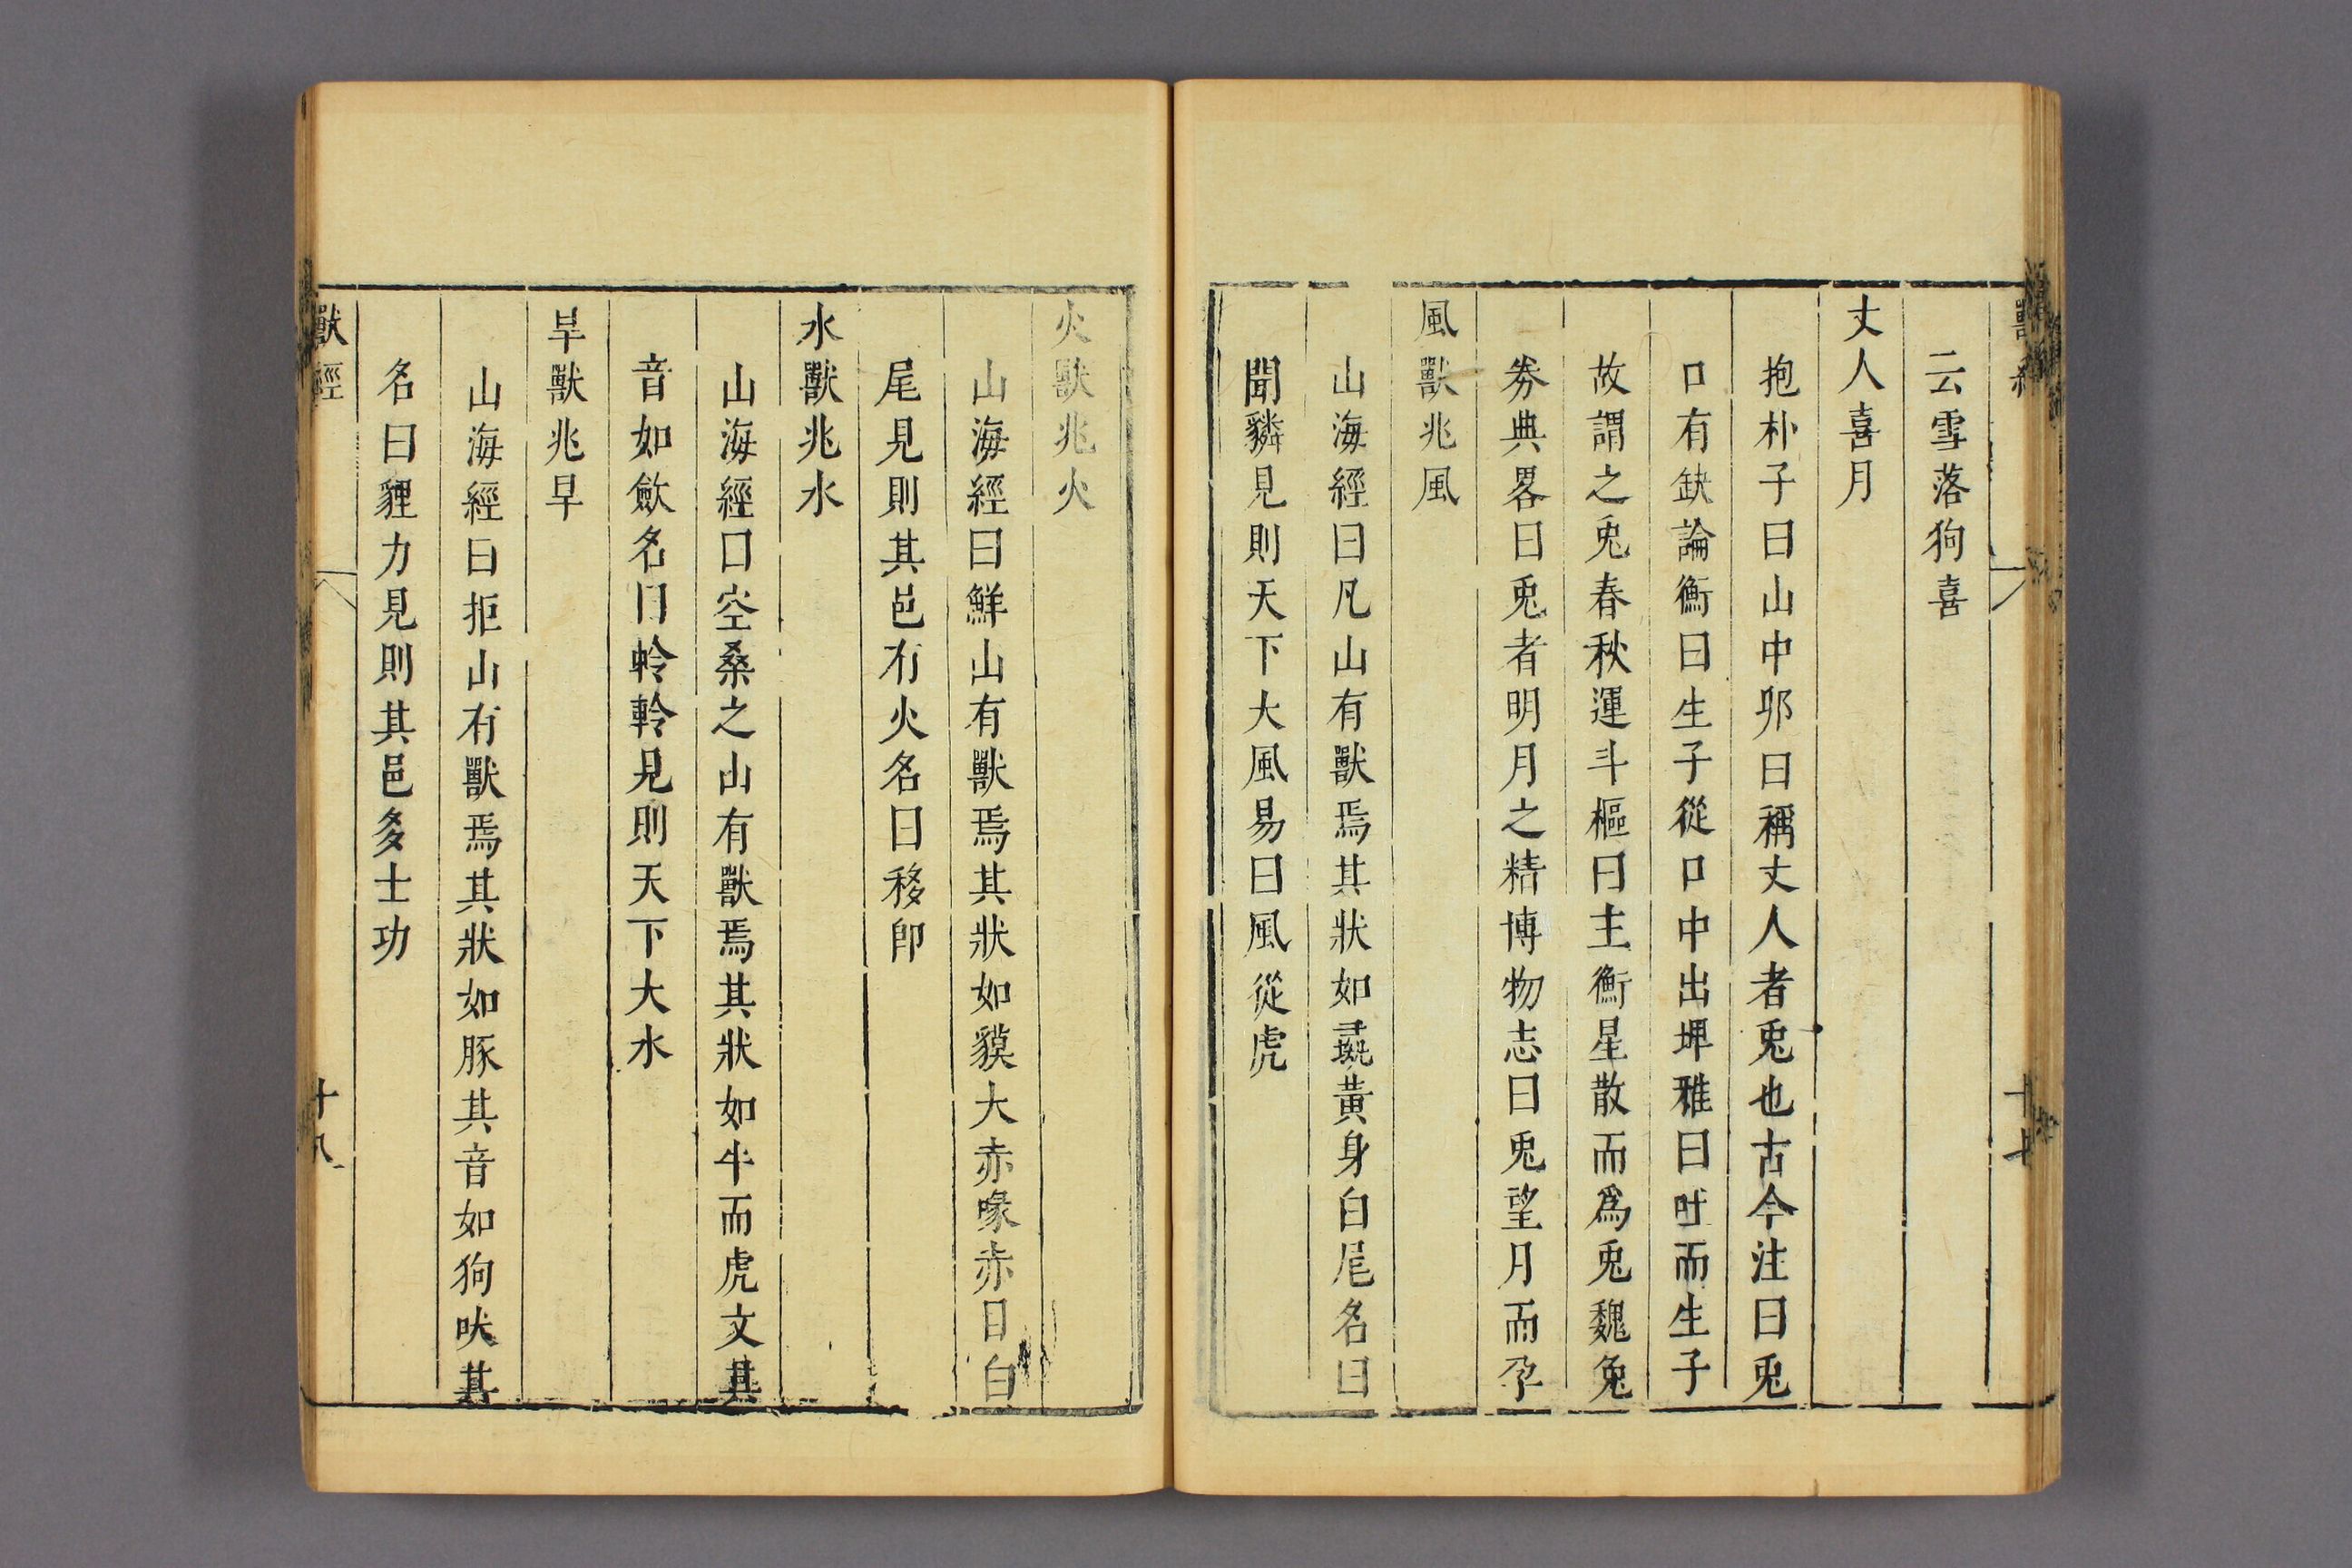 云雪落狗喜
丈人喜月
抱朴子曰山中夘日稱丈人者兎也古今注曰兎
口有缺論衡曰生子從口中出埤雅曰吐而生子
故謂之兎春秋運斗樞曰主衡星散而爲兎魏兔
劵典畧曰兎者明月之精博物志曰兎望月而孕
風獸兆風
山海經曰凡山有獸焉其狀如彘黃身白尾名曰
聞豨見則天下大風易曰風從虎
火獸兆火
山海經曰鮮山有獸焉其狀如貘大赤喙赤日白
尾見則其邑有火名曰移卽
水獸兆水
山海經曰空桑之山有獸焉其狀如牛而虎文其
音如歛名曰軨軨見則天下大水
旱獸兆旱
山海經曰拒山有獸焉其狀如豚其音如狗吠其
名曰貍力見則其邑多士功
獸經
十八